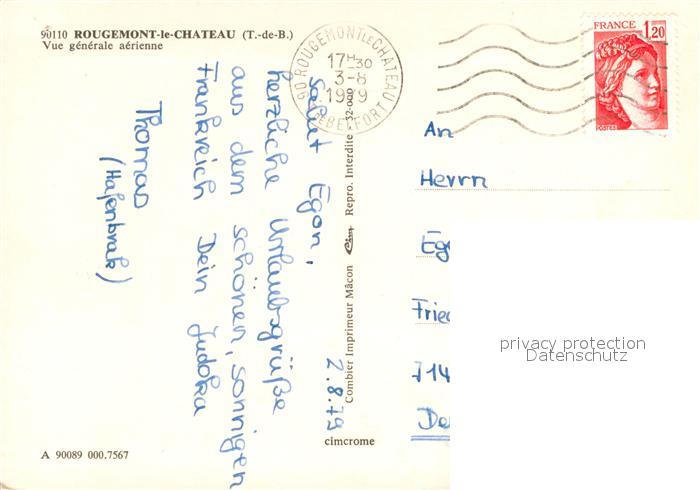 90110 ROUGEMONT-le-CHATEAU (T.-de-B.)
Vue générale aérienne
90 ROUGEMONT LE CHATEAU
17H30
3-8
1979
DE BELFORT
FRANCE
1,20
POSTES
2.8.79
Salut Egon,
herzliche Urlaubsgrüße
aus dem schönen, sonnigen
Frankreich Dein Judoka
Thomas
(Hafenbrak)
Combier Imprimeur Mâcon Cim Repro. Interdite
cimcrome
A 90089 000.7567
An
Herrn
Eg
Fried
714
De
privacy protection
Datenschutz